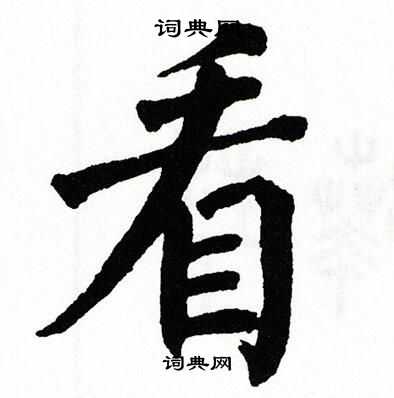 词典网
看
词典网